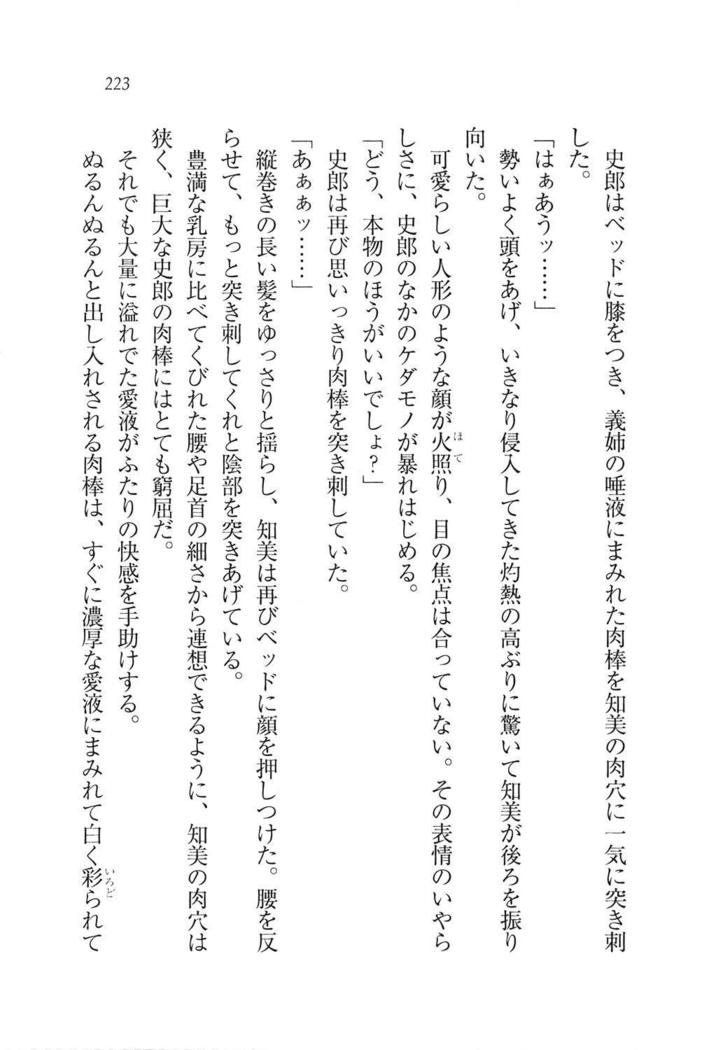 223
史郎はベッドに膝をつき、義姉の唾液にまみれた肉棒を知美の肉穴に一気に突き刺
した。
「はぁあうッ……」
勢いよく頭をあげ、いきなり侵入してきた灼熱の高ぶりに驚いて知美が後ろを振り
向いた。
可愛らしい人形のような顔が火照り、目の焦点は合っていない。その表情のいやら
ほて
しさに、史郎のなかのケダモノが暴れはじめる。
「どう、本物のほうがいいでしょ？」
史郎は再び思いっきり肉棒を突き刺していた。
「あぁぁッ……」
縦巻きの長い髪をゆっさりと揺らし、知美は再びベッドに顔を押しつけた。腰を反
らせて、もっと突き刺してくれと陰部を突きあげている。
豊満な乳房に比べてくびれた腰や足首の細さから連想できるように、知美の肉穴は
狭く、巨大な史郎の肉棒にはとても窮屈だ。
それでも大量に溢れでた愛液がふたりの快感を手助けする。
ぬるんぬるんと出し入れされる肉棒は、すぐに濃厚な愛液にまみれて白く彩られて
いろど